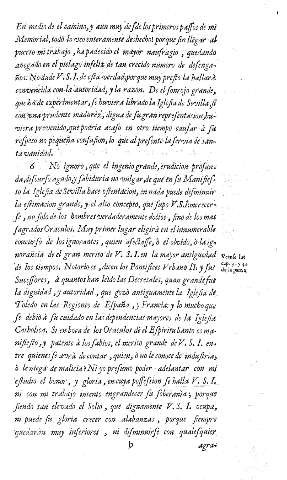 En medio de el camino, y aun muy desde los primeros passos de mi
Memorial, todo lo veo enteramente deshecho: porque sin llegar al
puerto mi trabajo, ha padecido el mayor naufragio, quedando
anegado en el pielago infeliz de tan crecido numero de desenga-
ños. No dude V. S. I. de esta verdad, porque muy presto la hallarà
convencida con la autoridad, y la razon. De el sonrojo grande,
que ha de experimentar, se huviera librado la Iglesia de Sevilla, si
con una prudente madurèz, digna de su gran representacion, hu-
viera prevenido, que podria acaso en otro tiempo causar à su
respeto no pequeña confusion, lo que al presente la servia de san-
ta vanidad.
6 No ignoro, que el ingenio grande, erudicion profun-
da, discurso agudo, y sabiduria no vulgar, de que en su Manifies-
to la Iglesia de Sevilla hace ostentacion, en nada puede disminuir
la estimacion grande, y el alto concepto, que supo V. S. I. merecer-
se, no solo de los hombres verdaderamente doctos, sino de los mas
sagrados Oraculos. Muy primer lugar eligirà en el innumerable
concurso de los ignorantes, quien afectasse, ò el olvido, ò la ig-
norancia de el gran merito de V. S. I. en la mayor antiguedad
de los tiempos. Notorio se, dicen los Pontifices Urbano II. y sus
Successores, à quantos han leido las Decretales, quan grande fue
la dignidad, y autoridad, que gozò antiguamente la Iglesia de
Toledo en las Regiones de España, y Francia: y lo mucho que
se debiò à su cuidado en las dependencias mayores de la Iglesia
Catholica. Si en boca de los Oraculos de el Espiritu Santo es ma-
nifiesto, y patente à los sabios, el merito grande de V. S. I. en-
tre quienes se avrà de contar, quien, ò no le conoce de industria,
ò le niega de malicia? Ni yo presumo poder adelantar con mi
estudio el honor, y gloria, en cuya possession se halla V. S. I.
ni con mi trabajo intento engrandecer su soberania; porque
siendo tan elevado el Solio, que dignamente V. S. I. ocupa,
ni puede su gloria crecer con alabanzas, porque siempre
quedaràn muy inferiores, ni disminuirse con qualesquier
b agra-